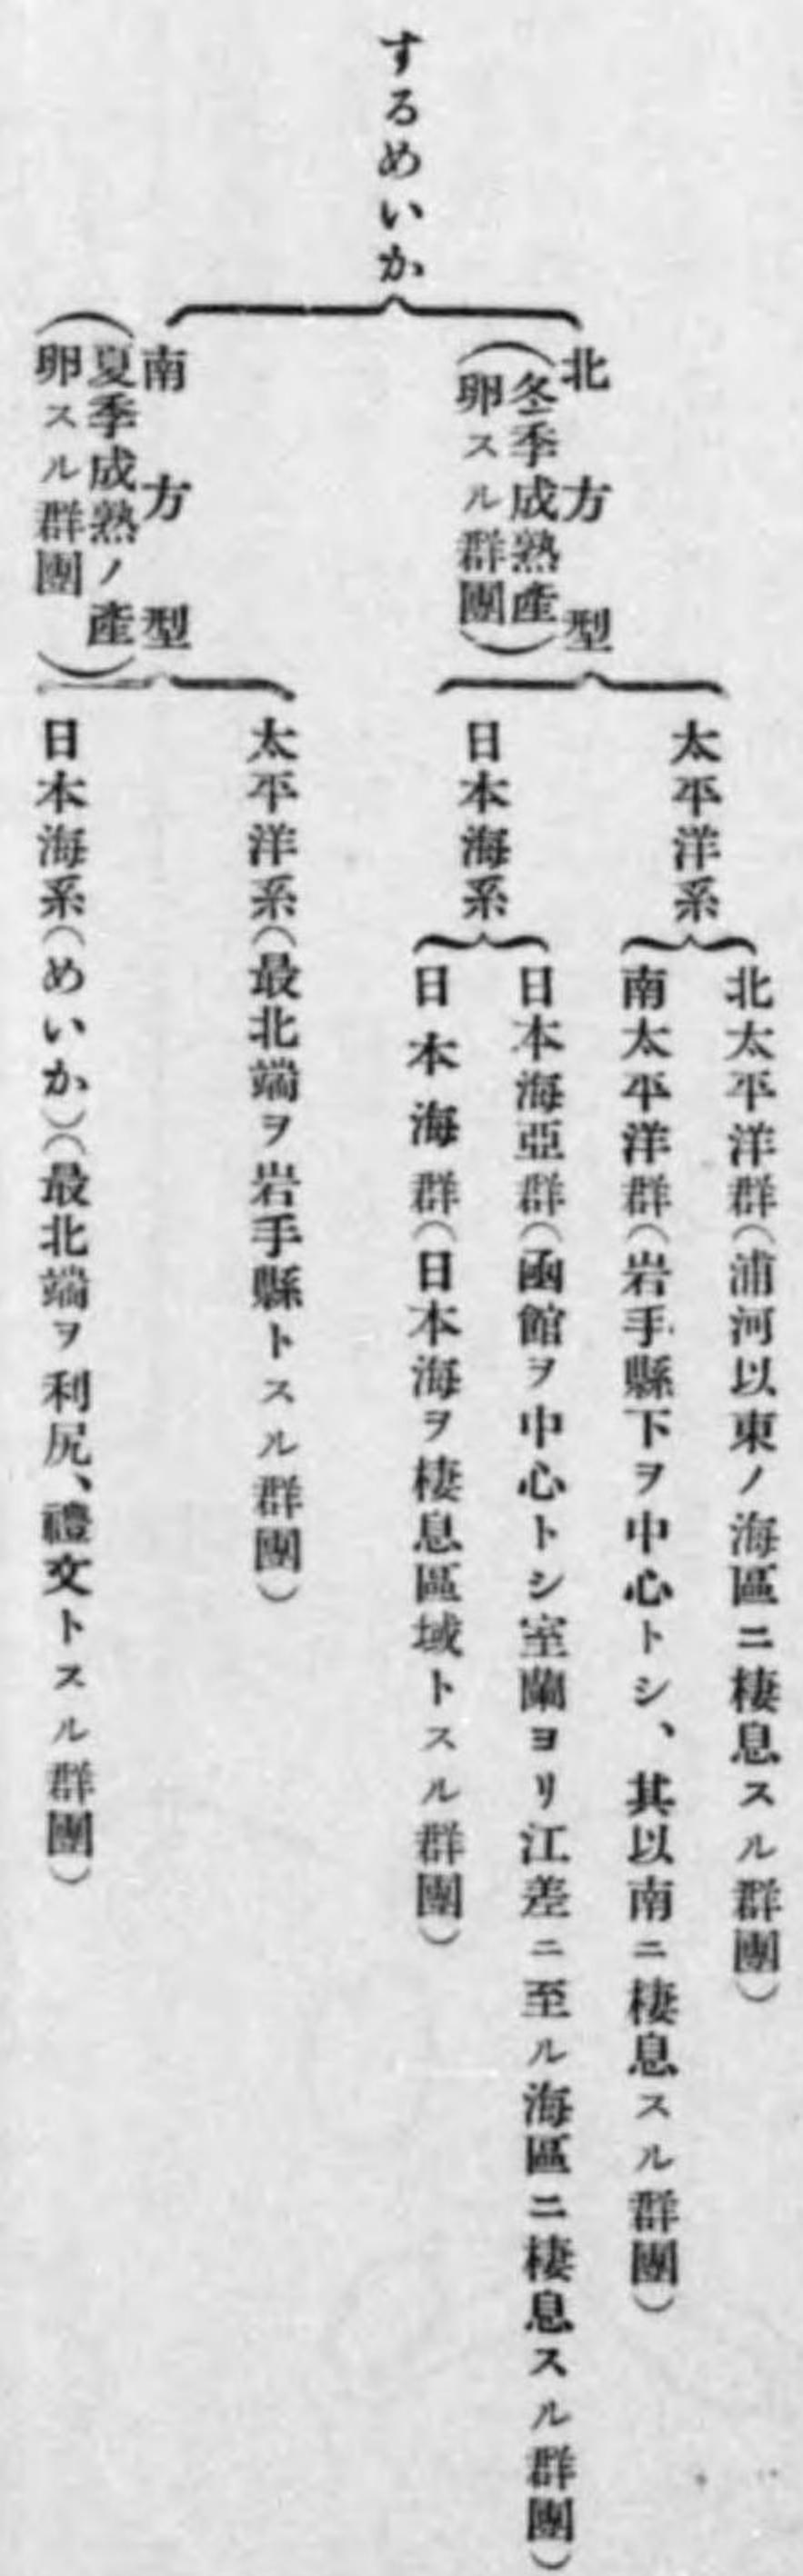 するめいか
北方型
（冬季成熟産
卵スル群團）
太平洋系
北太平洋群（浦河以東ノ海區ニ棲息スル群團）
南太平洋群（岩手縣下ヲ中心トシ、其以南ニ棲息スル群團）
日本海系
日本海亞群（函館ヲ中心トシ室蘭ヨリ江差ニ至ル海區ニ棲息スル群團）
日本海群（日本海ヲ棲息區域トスル群團）
南方型
（夏季成熟ノ産
卵スル群團）
太平洋系（最北端ヲ岩手縣トスル群團）
日本海系（めいか）（最北端ヲ利尻、禮文トスル群團）